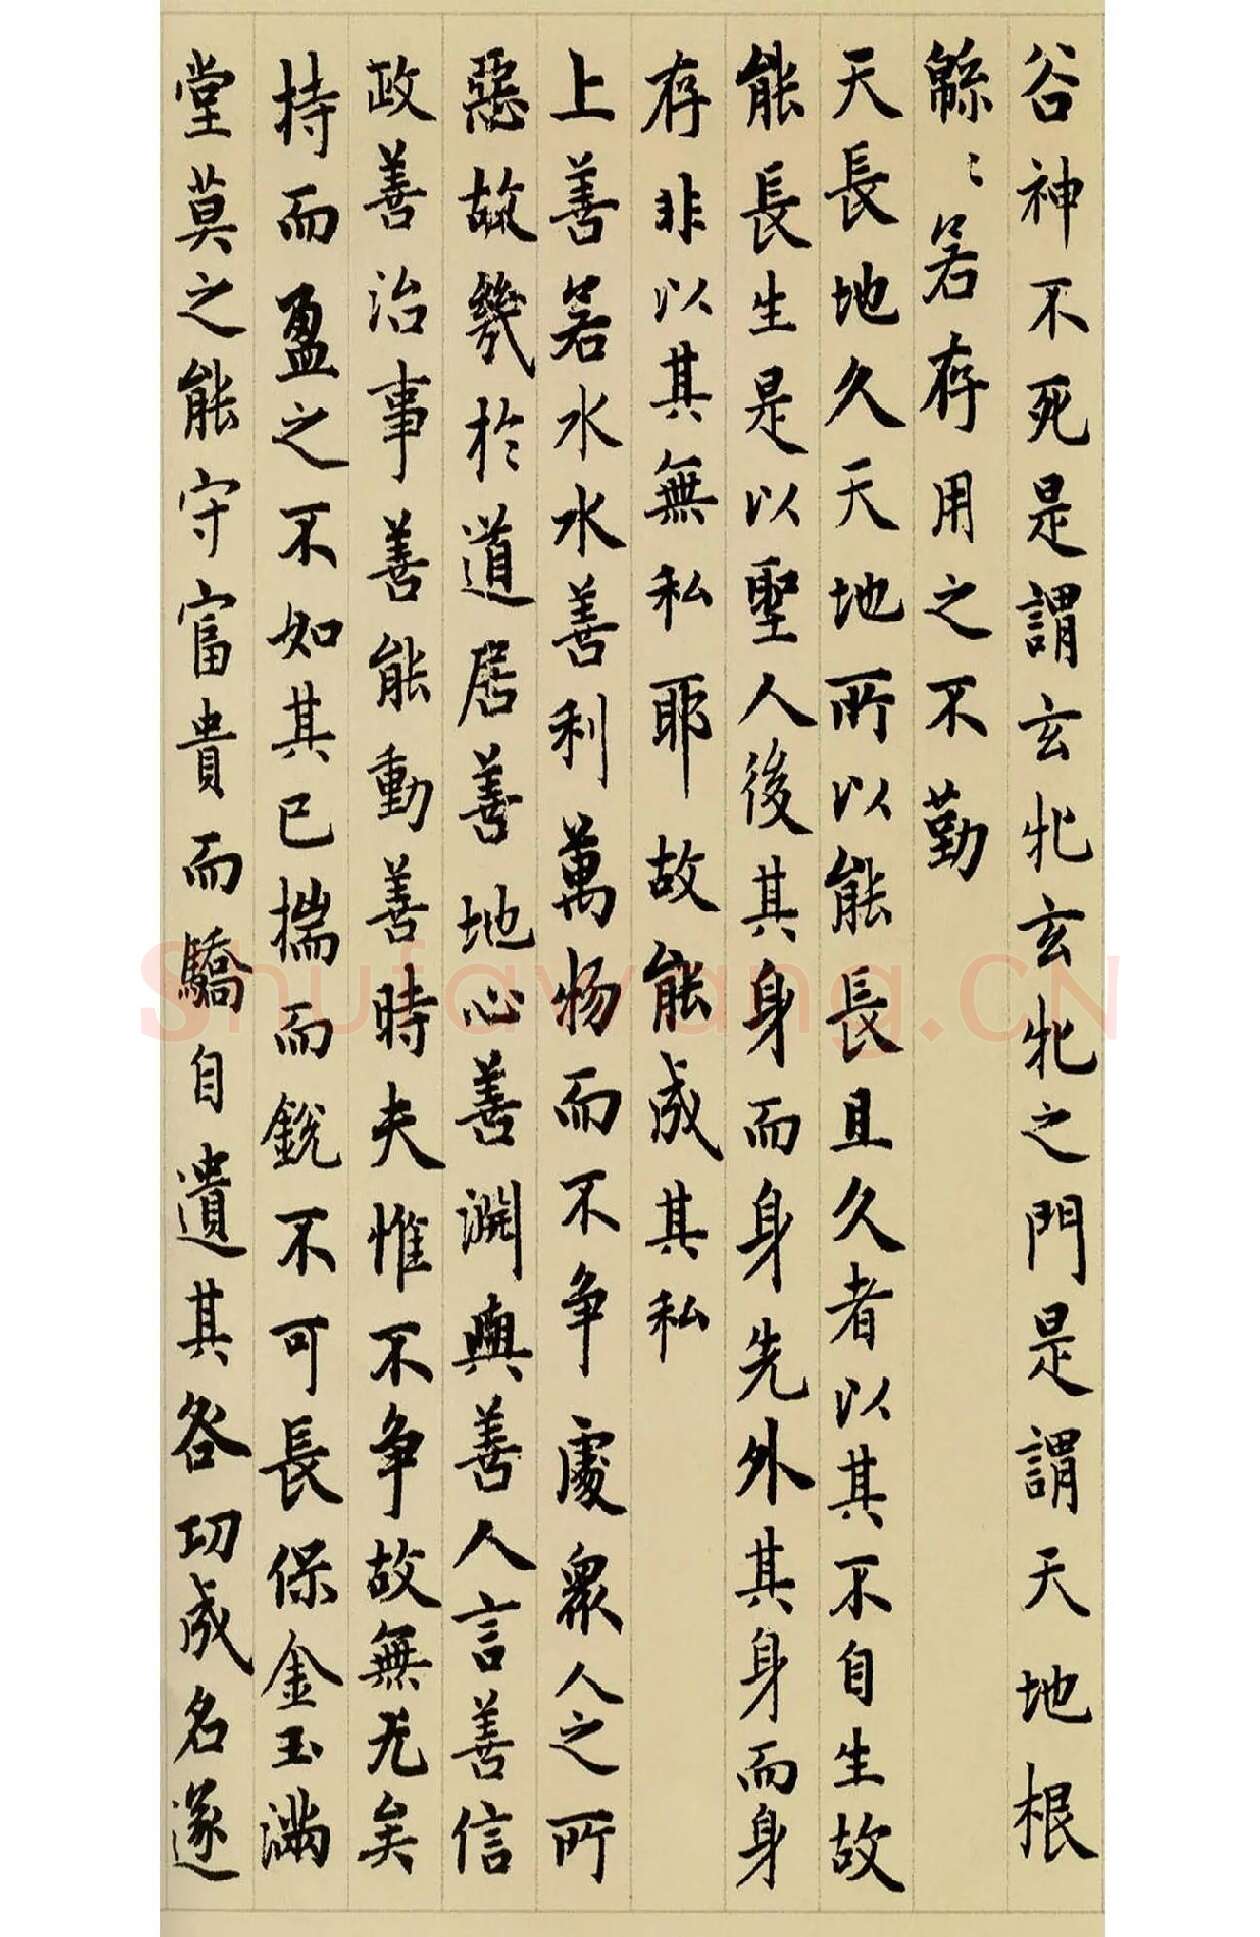 谷神不死是謂玄牝玄牝之門是謂天地根
緜〻若存用之不勤
天長地久天地所以能長且久者以其不自生故
能長生是以聖人後其身而身先外其身而身
存非以其無私耶故能成其私
上善若水水善利萬物而不争處衆人之所
惡故幾於道居善地心善淵與善人言善信
政善治事善能動善時夫惟不争故無尤矣
持而盈之不如其已揣而銳不可長保金玉滿
堂莫之能守富貴而驕自遺其咎功成名遂
Shufawang.CN